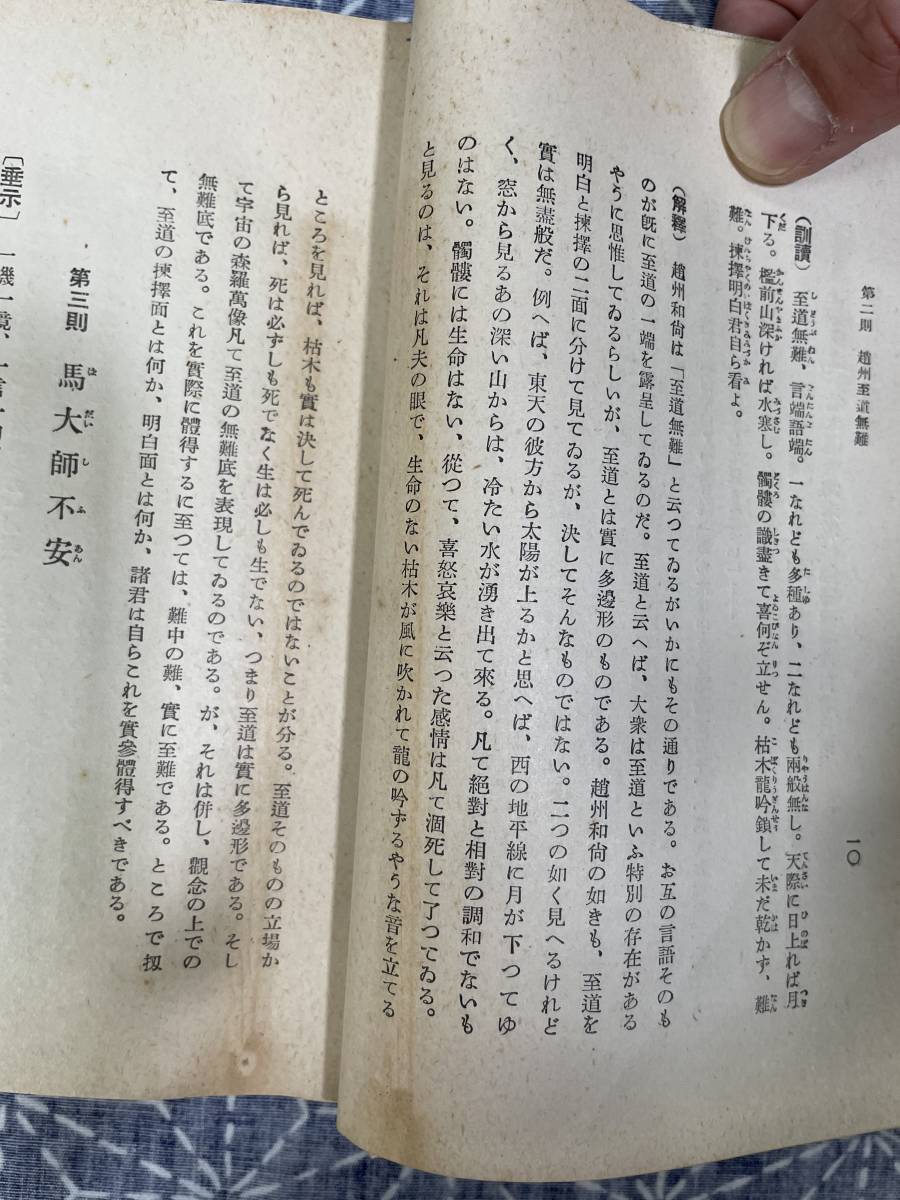 第二則 趙州至道無難
一〇
(訓讀) 至道無難、言端語端。一なれども多種あり、二なれども兩般無し。天際に日上れば月
下る。檻前山深ければ水寒し。髑髏の識盡きて喜何ぞ立せん。枯木龍吟銷して未だ乾かず、難
難。揀擇明白君自ら看よ。
(解釋) 趙州和尙は「至道無難」と云つてゐるがいかにもその通りである。お互の言語そのも
のが旣に至道の一端を露呈してゐるのだ。至道と云へば、大衆は至道といふ特別の存在がある
やうに思惟してゐるらしいが、至道とは實に多邊形のものである。趙州和尙の如きも、至道を
明白と揀擇の二面に分けて見てゐるが、決してそんなものではない。二つの如く見へるけれど
實は無盡般だ。例へば、東天の彼方から太陽が上るかと思へば、西の地平線に月が下つてゆ
く、窓から見るあの深い山からは、冷たい水が湧き出て來る。凡て絕對と相對の調和でないも
のはない。髑髏には生命はない、從つて、喜怒哀樂と云つた感情は凡て涸死して了つてゐる。
と見るのは、それは凡夫の眼で、生命のない枯木が風に吹かれて龍の吟ずるやうな音を立てる
ところを見れば、枯木も實は決して死んでゐるのではないことが分る。至道そのものの立場か
ら見れば、死は必ずしも死でなく生は必しも生でない、つまり至道は實に多邊形である。そし
て宇宙の森羅萬像凡て至道の無難底を表現してゐるのである。が、それは併し、觀念の上での
無難底である。これを實際に體得するに至つては、難中の難、實に至難である。ところで扨
て、至道の揀擇面とは何か、明白面とは何か、諸君は自らこれを實參體得すべきである。
第三則 馬大師不安
〔垂示〕 一機一境、一言一